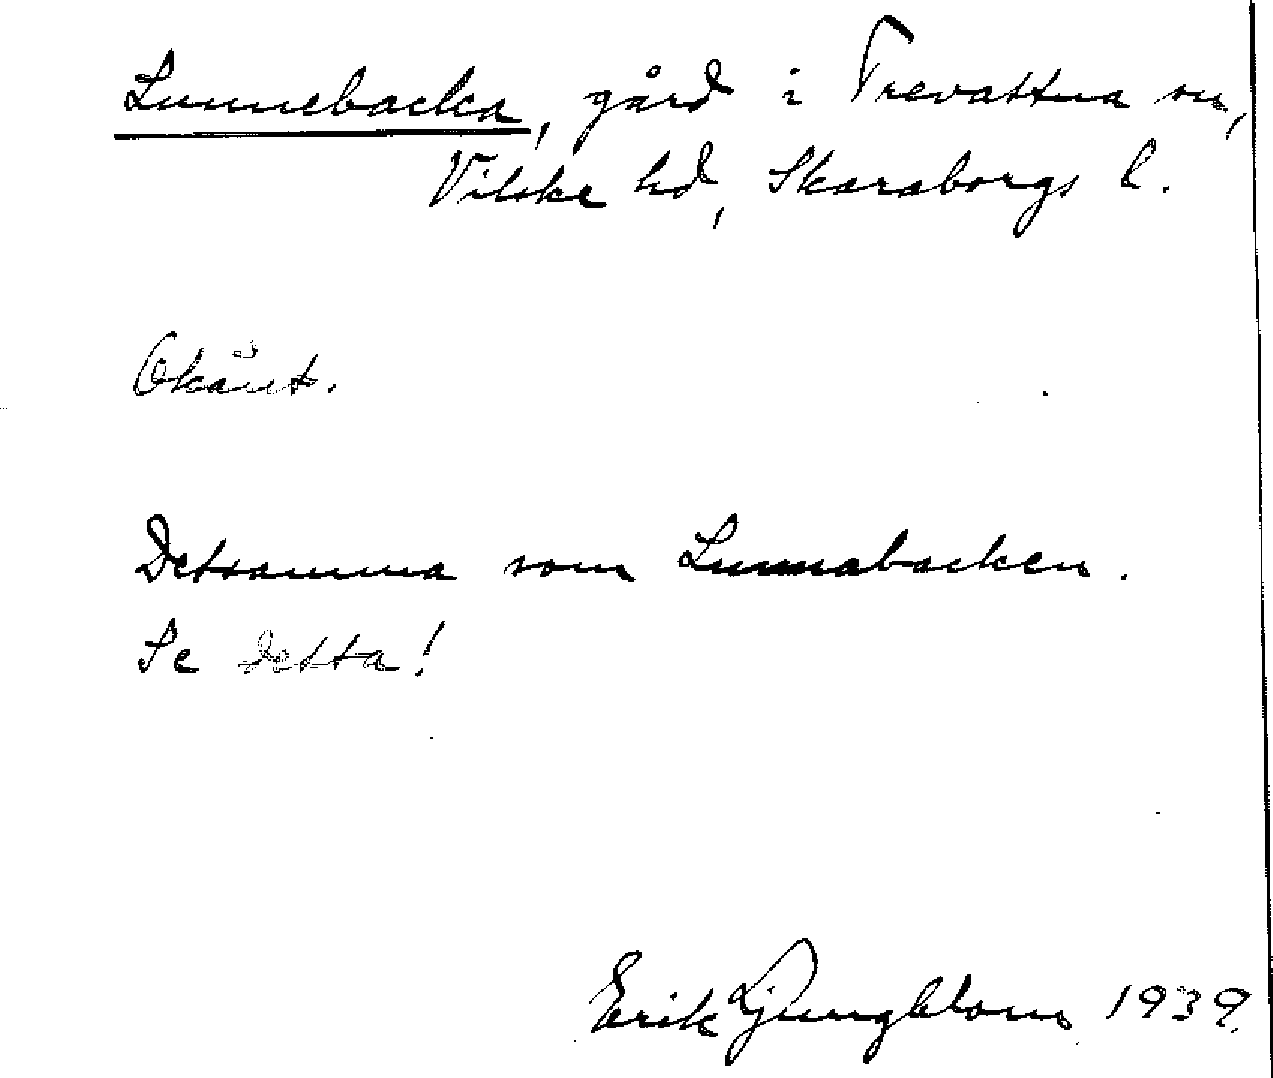 Lunnebacka, gård i Trevattna sn,
Vilske hd, Skaraborgs l.
Okänt.
Detsamma som Lunnabacken.
Se detta!
Erik Ljungblom 1939.